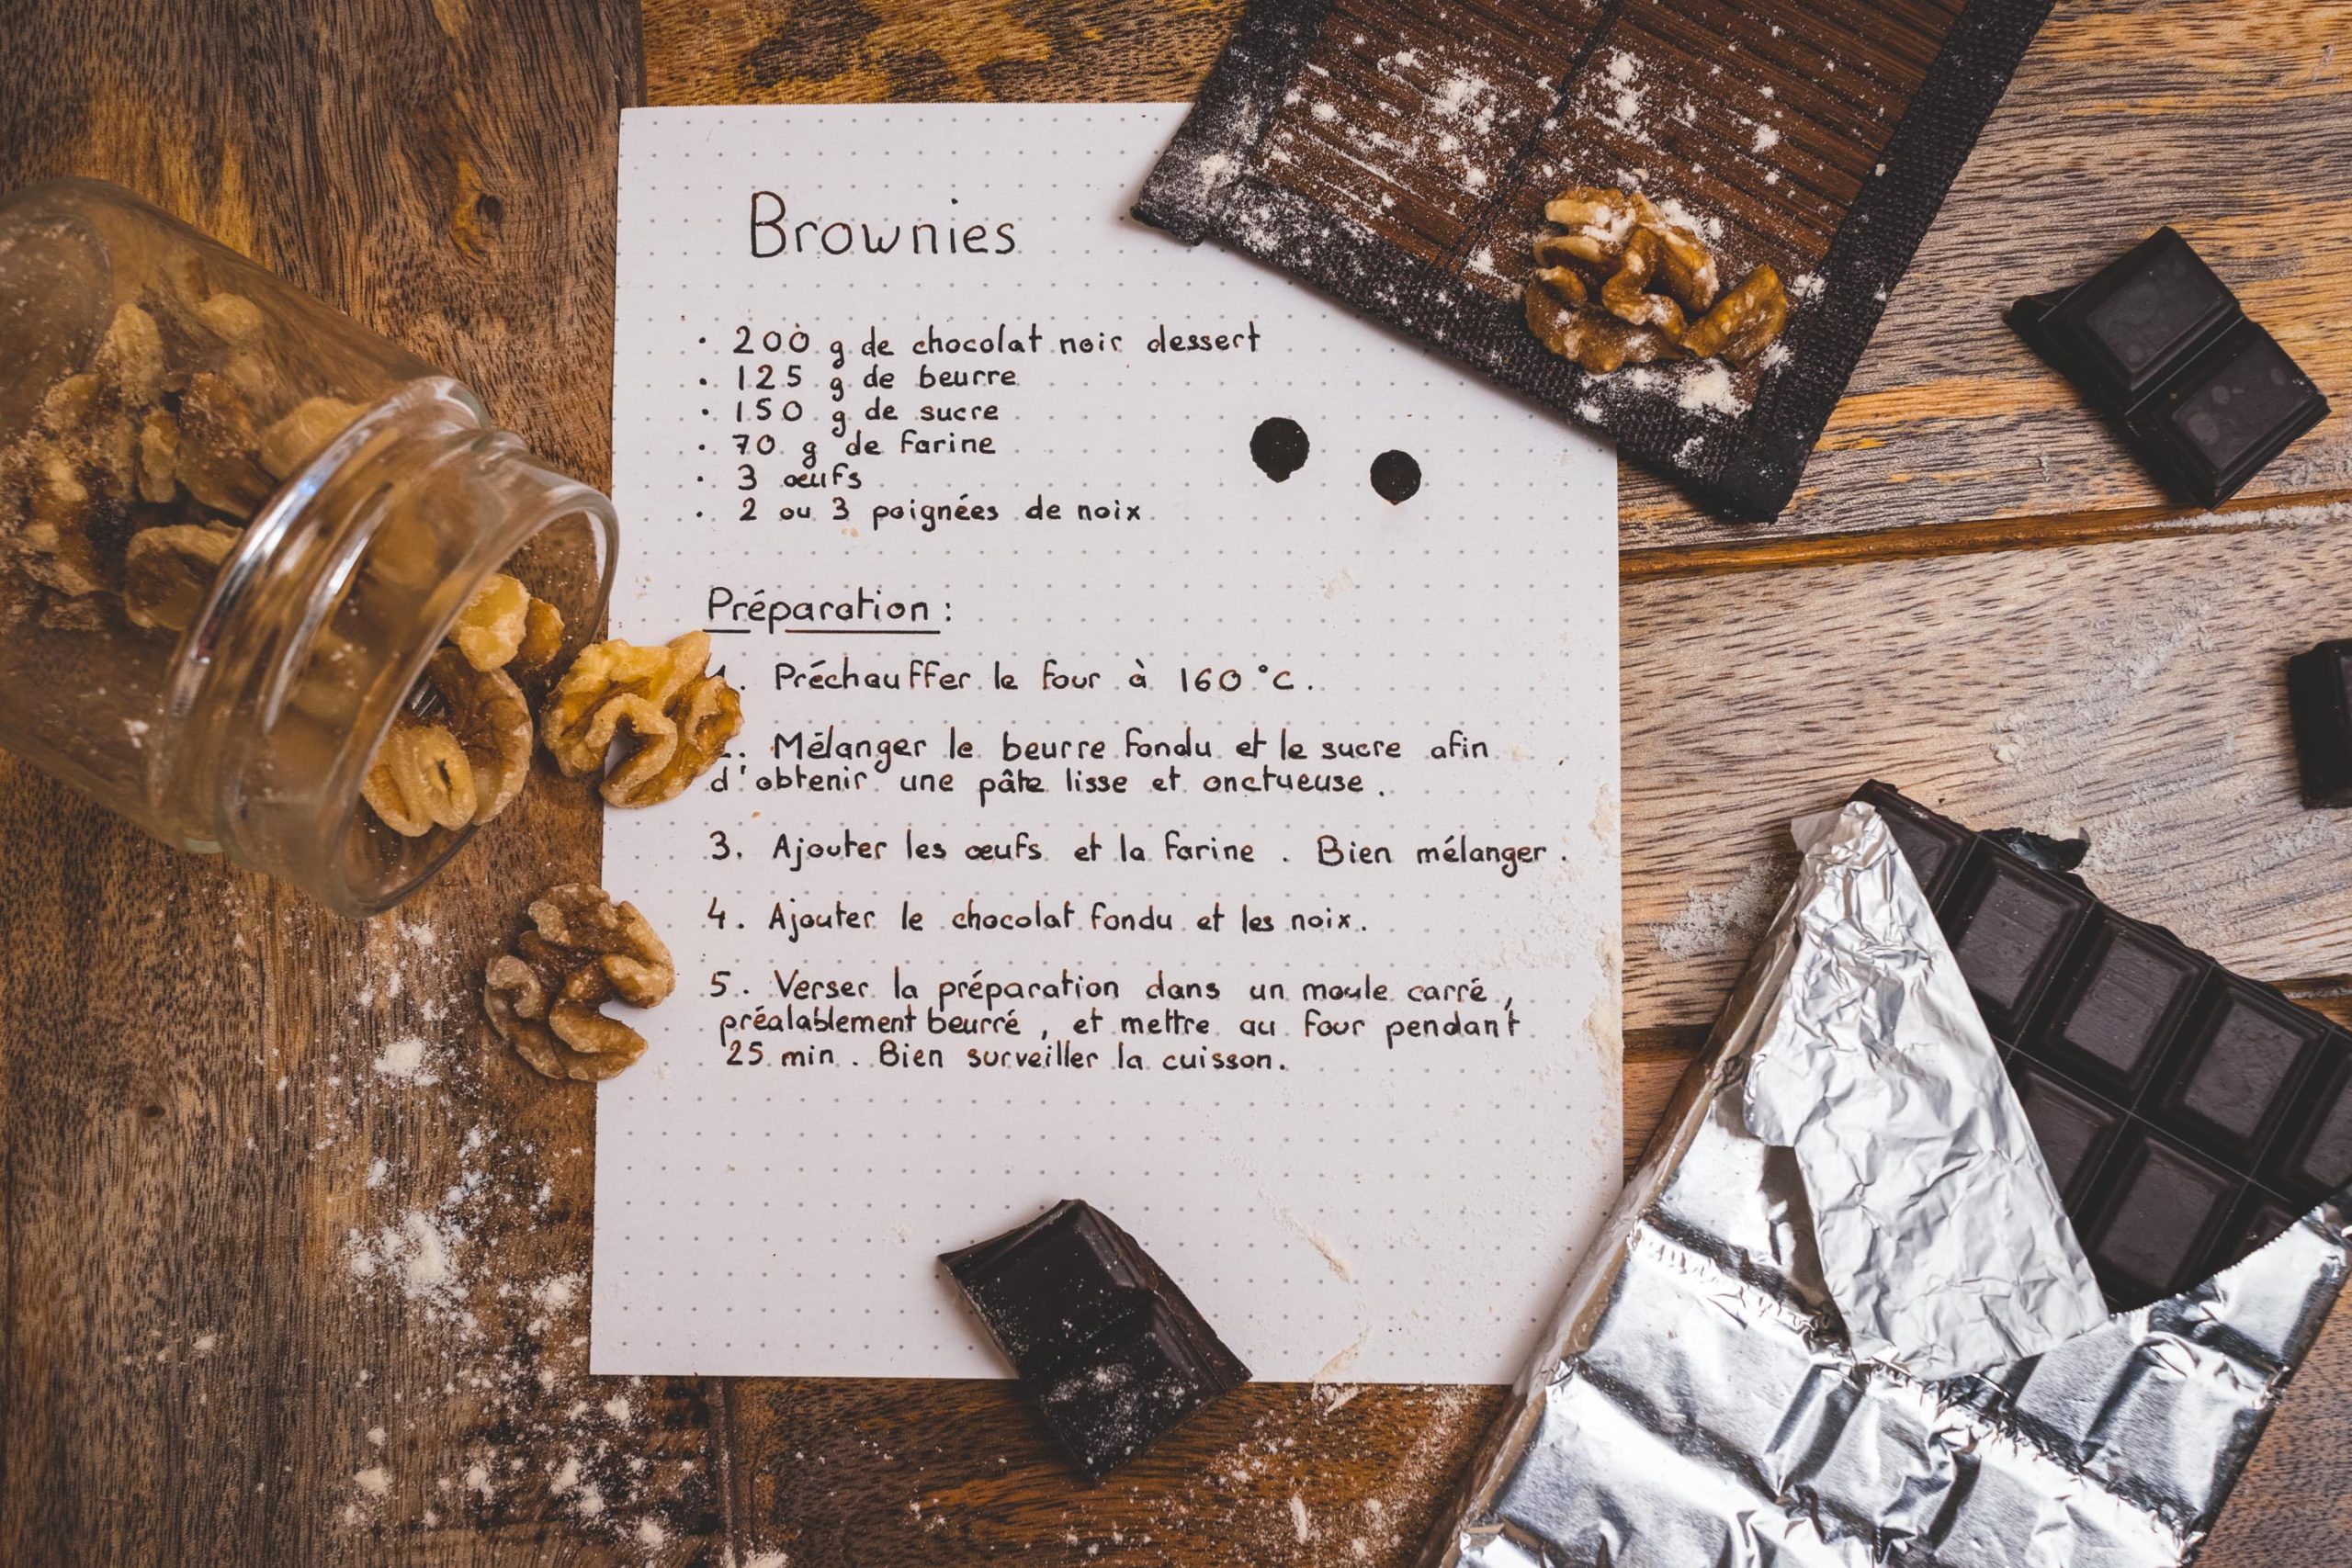 Brownies
• 200 g de chocolat noir dessert
• 125 g de beurre
• 150 g de sucre
• 70 g de farine
• 3 œufs
• 2 ou 3 poignées de noix
Préparation :
1. Préchauffer le four à 160 °C.
2. Mélanger le beurre fondu et le sucre afin
d'obtenir une pâte lisse et onctueuse.
3. Ajouter les œufs et la farine. Bien mélanger.
4. Ajouter le chocolat fondu et les noix.
5. Verser la préparation dans un moule carré,
préalablement beurré, et mettre au four pendant
25 min. Bien surveiller la cuisson.